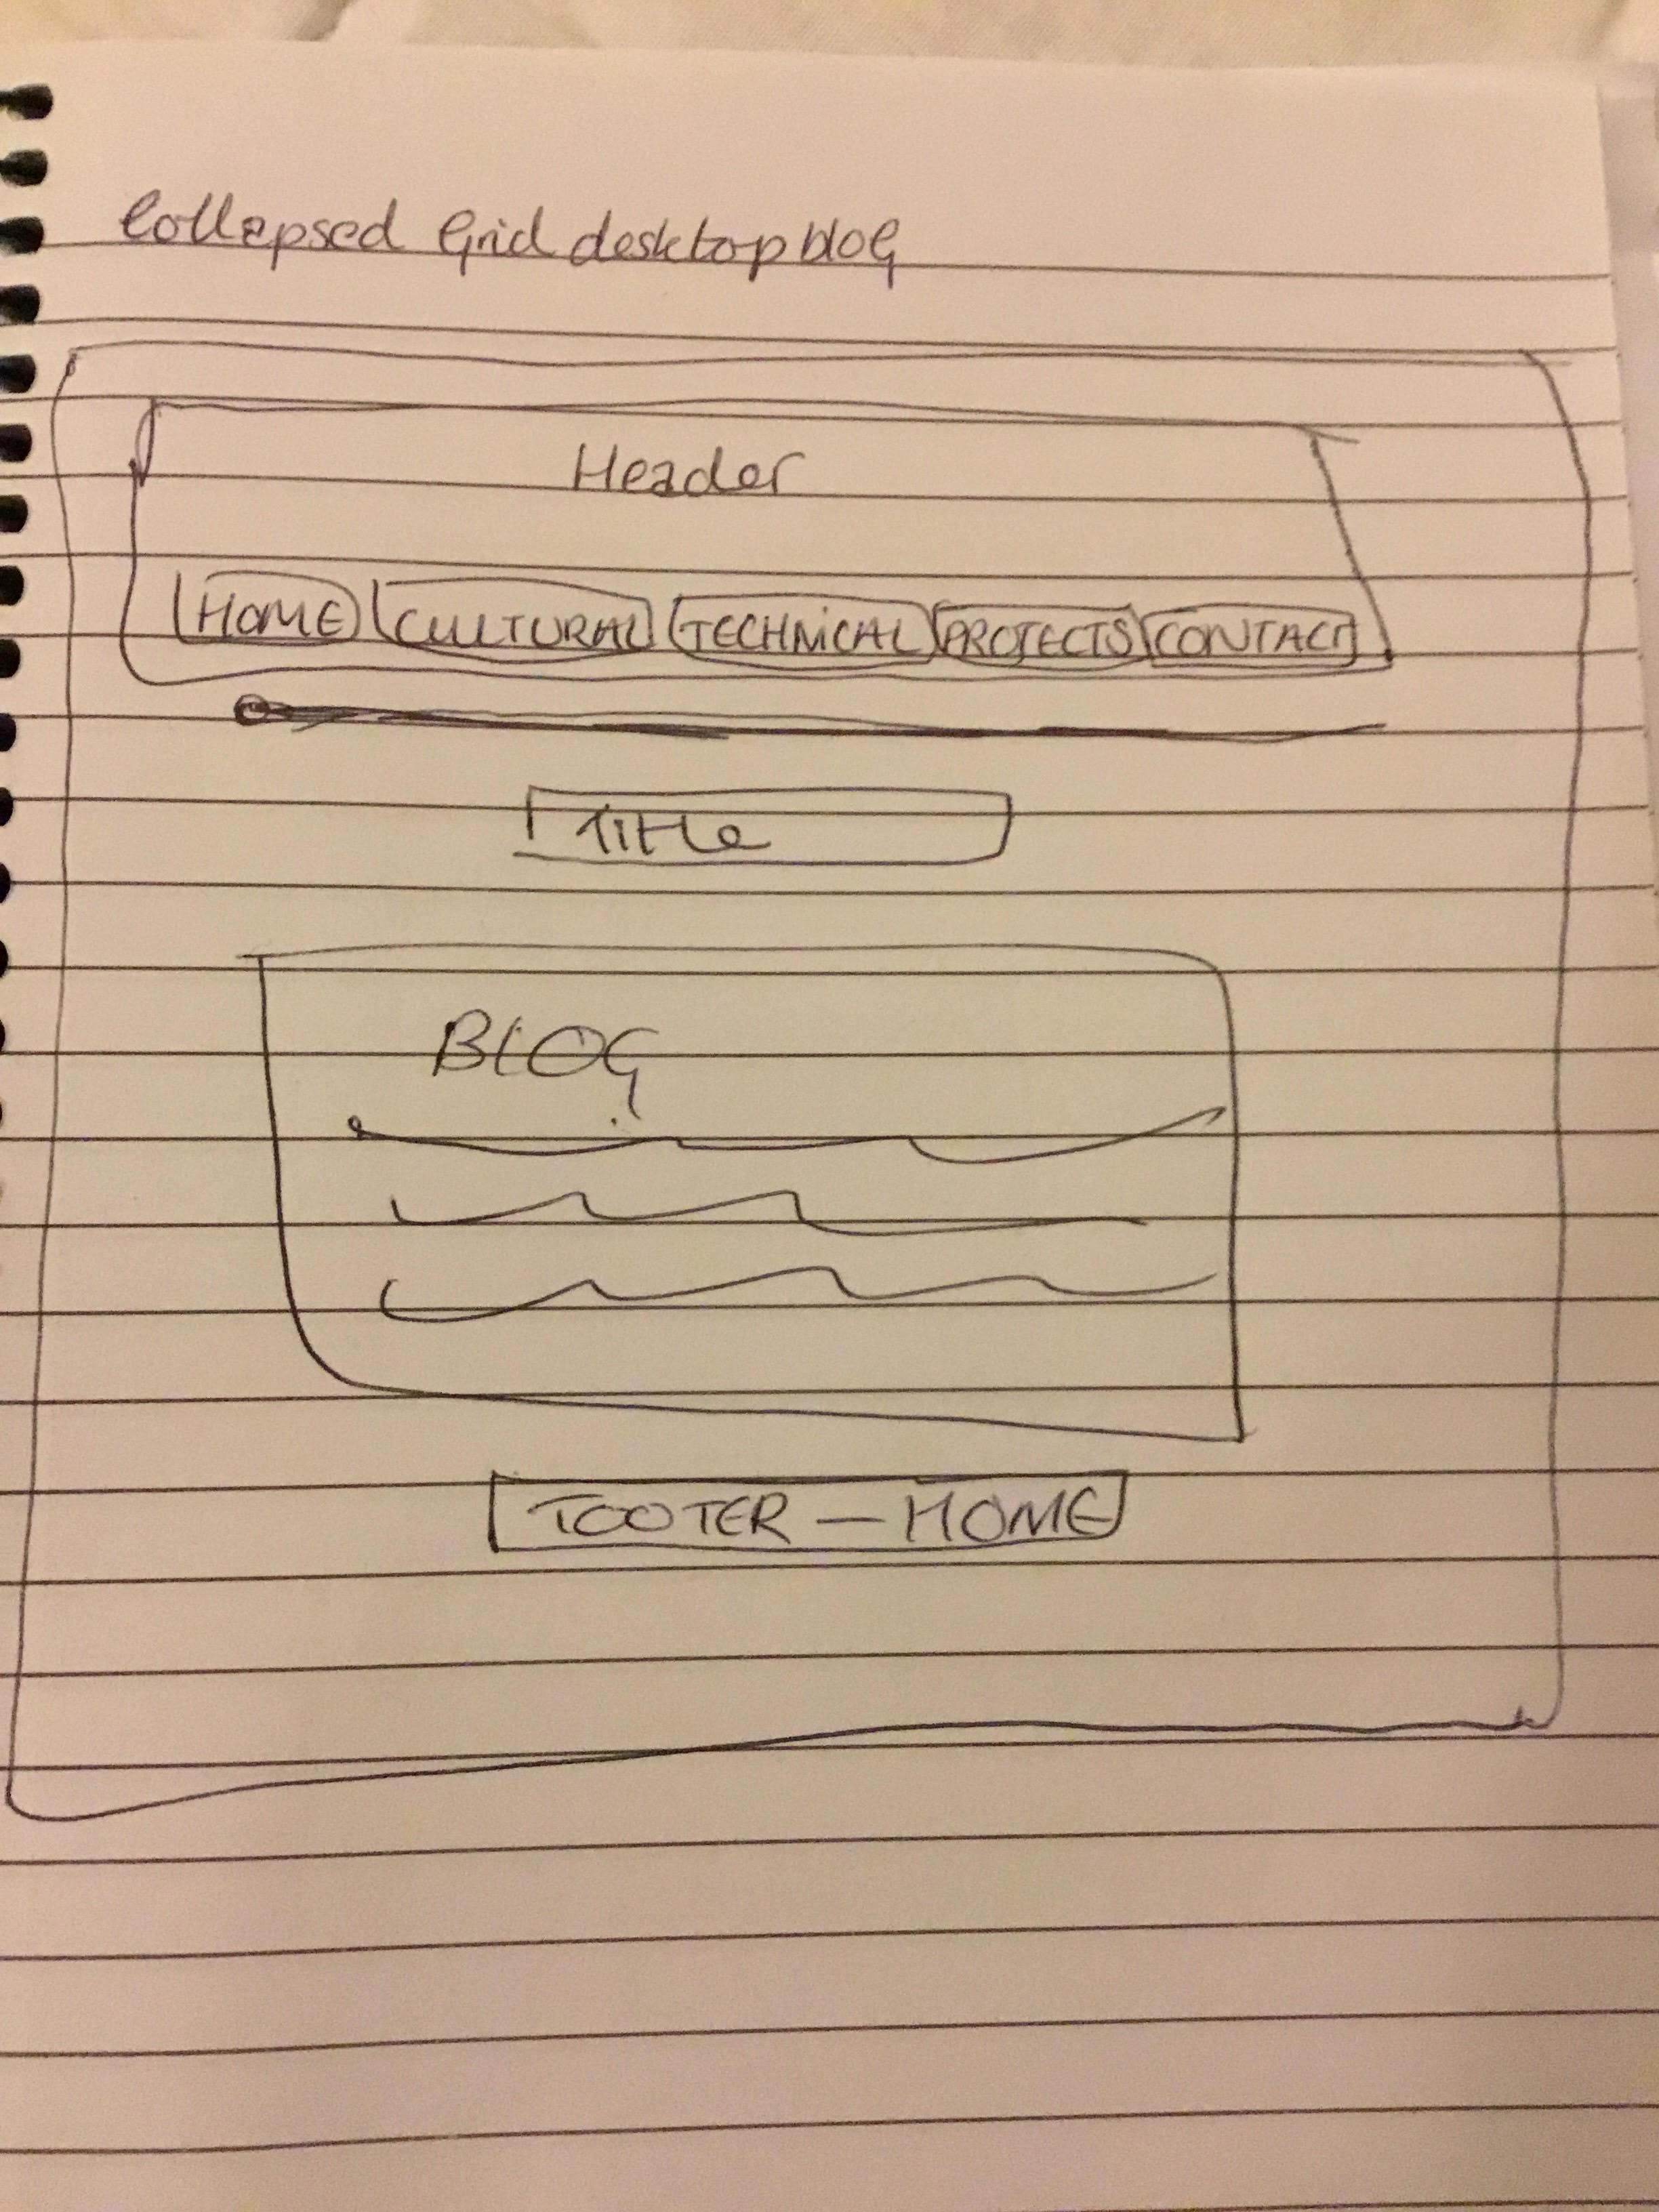 Collapsed Grid desktop blog
Header
HOME CULTURAL TECHNICAL PROJECTS CONTACT
Title
BLOG
FOOTER — HOME